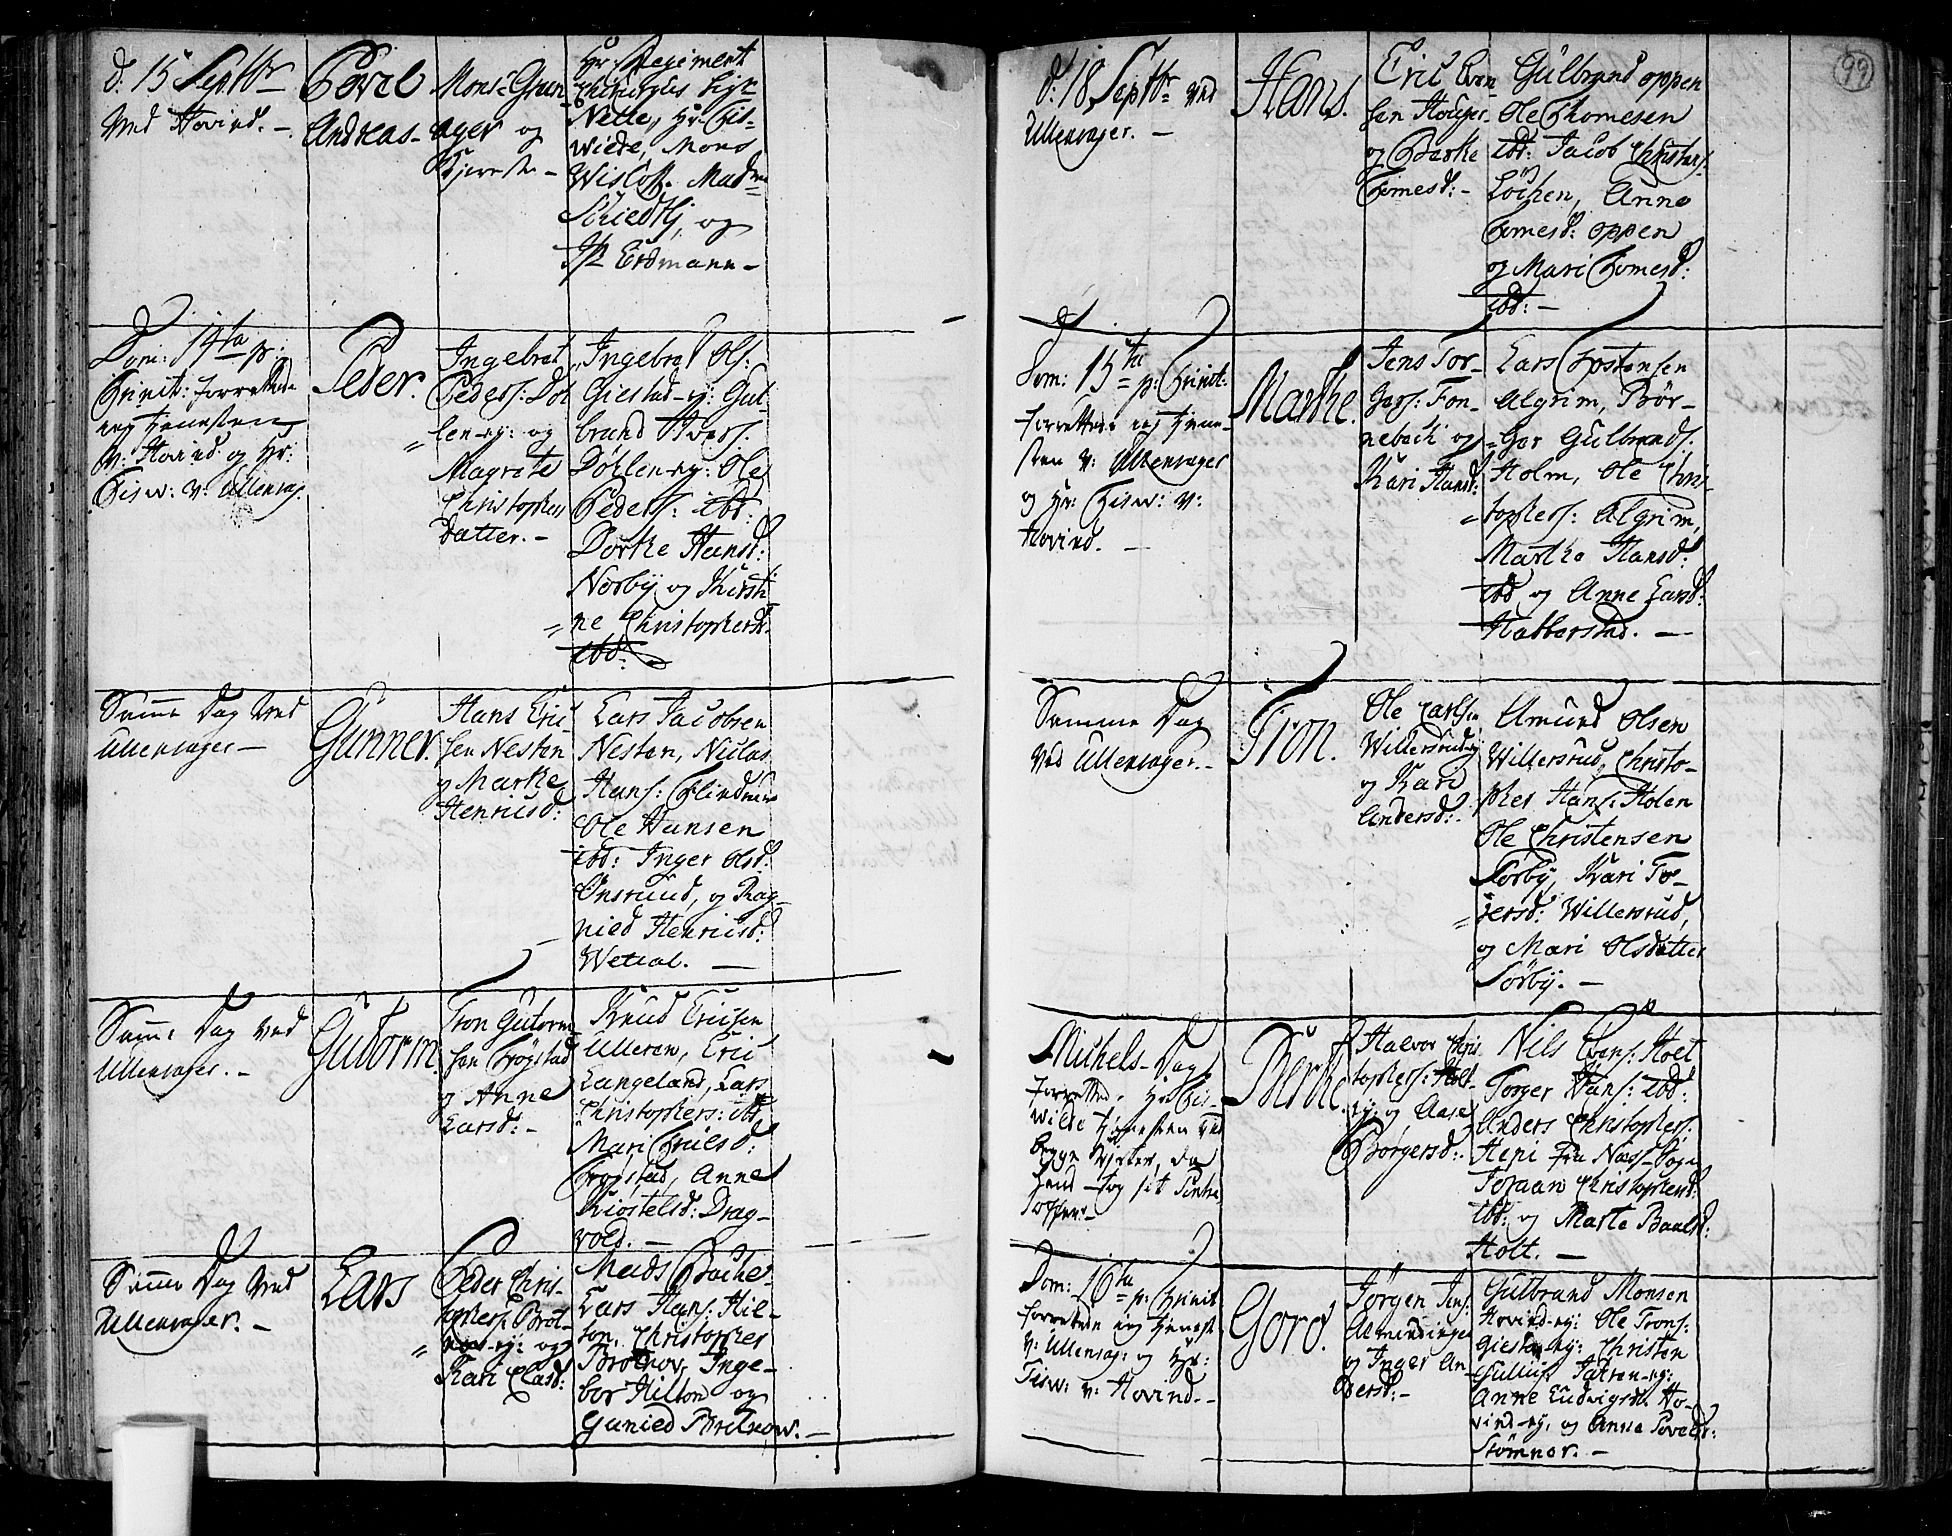 d. 15 Septbr
Ved Hovind. -
Povel
Andreas -
Mons: Grun-
ager og
Hr. Regiment
Nelle, Hr. Tis-
wiede, Mons.
Wisløff. Mad=
og
Erdmann -
Dom: 14ta p:
Trinit: forrettede
ieg tienesten
v: Hovind og Hr:
Tisw: v: Ullensag.
Peder.
Ingebret
Peders: Døl
len-ey: og
Magrete
Christophers
datter. -
Ingebret Ols:
Giestad-ey: Gul-
brand Ivers.
Døhlen-ey: Ole
Peders: ibd:
Dorthe Hansd:
Norby og Kirsti
ne Christophersd.
ibd:
Samme Dag ved
Ullensager -
Gunner.
Hans Eric
sen Nesten
og Marthe
Henricsd:
Lars Jacobsen
Nesten, Niclas
Hans:
Ole Hansen
ibd: Inger Olsd:
Onsrud, og Rag-
nied Henricsd:
Wetial. -
Samme Dag ved
Ullensager. -
Gutorm.
Tron Gutorm
sen Trøgstad
og Anne
Larsd: -
Knud Ericsen
Ulleren, Eric
Langeland, Lars
Christophers: ibd
Mari Trulsd:
Trøgstad, Anne
Kiøstelsd: Drag-
vold. -
Samme Dag ved
Ullensager. -
Lars
Peder Chris-
tophers. Brot-
now-ey: og
Kari Clasd:
Mads Bache-
Lars Hans: Hil-
ton, Christopher
Brotnov, Inge-
bor Hilton og
Gunied Brotnow. -
99
d. 18 Septbr ved
Ullensager. -
Hans.
Eric Even-
sen Houger
og Berthe
Tomesd: -
Gulbrand oppen
Ole Thomesen
ibd: Jacob Christens.
Løchen, Anne
Tomesd: oppen
og Mari Tomesd:
ibd: -
Dom: 15ta p: Trinit:
forrettede ieg tiene-
sten v: Ullensager
og Hr: Tisw: v:
Hovind. -
Marthe.
Jens Tor-
gers: Fon-
nebech og
Kari Hansd:
Lars Tostensen
Algrim, Bør-
ger Gulbrands:
Holm, Ole Chris-
tophers: Algrim,
Marthe Hansd:
ibd og Anne Larsd:
Habberstad. -
Samme Dag
Ved Ullensager. -
Tron.
Ole Carlsen
Willersrud-ey
og Kari
Andersd:
Amund Olsen
Willersrud, Christo-
pher Hans: Holen
Ole Christensen
Sørby, Kari To-
rersd: Willersrud,
og Mari Olsdatter
Sørby. -
Michels-Dag
forrettede Hr. Tis-
wide tienesten ved
begge Kirker, da
hand tog sit Tertie
offer.
Berthe.
Halvor Chris
tophers: Holt-
ey: og Aase
Børgersd:
Nils Evens: Holt
Torger Hans: ibd:
Anders Christophers:
Hepi fra Næss-Sogn
Joraan Christophersd:
ibd: og Marte Paulsd:
Holt. -
Dom: 16ta p: Trinit
forrettede ieg tienest
v: Ullensag: og Hr:
Tisw: v: Hovind. -
Gord.
Jørgen Jens:
Almindinge
og Inger An
dersd: -
Gulbrand Monsen
Hovind-ey: Ole Trons:
Giestad-ey: Christen
Jahren-ey:
Anne Ludvigsd. Ho-
vind-ey. og Anne Povelsd:
Stømner. -